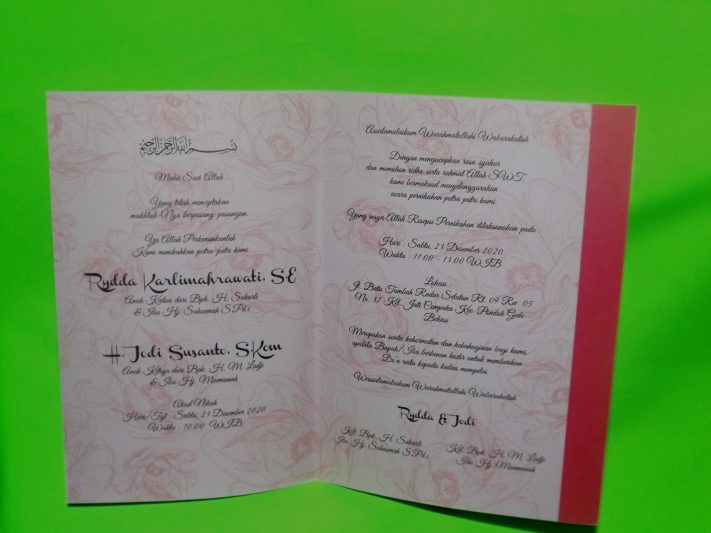 بسم الله الرحمن الرحيم
Maha Suci Allah
Yang telah menciptakan
makhluk-Nya berpasang-pasangan.
Ya Allah Perkenankanlah
Kami menikahkan putra-putri kami
Rydda Karlimahrawati, SE
Anak Kedua dari Bpk. H. Sukarti
& Ibu Hj. Suhaemah S.Pd.i
H. Jodi Susanto, SKom
Anak Ketiga dari Bpk. H. M. Lodji
& Ibu Hj. Maemunah
Akad Nikah
Hari/Tgl : Sabtu, 23 Desember 2020
Waktu : 10.00 WIB
Assalamulaikum Warahmatullahi Wabarakatuh
Dengan mengucapkan rasa syukur
dan menahan ridho serta rahmat Allah SWT.
kami bermaksud menyelenggarakan
acara pernikahan putra putri kami.
Yang insya Allah Resepsi Pernikahan dilaksanakan pada
Hari : Sabtu, 23 Desember 2020
Waktu : 11.00 - 13.00 WIB
Lokasi :
Jl. Batu Tumbuh Radar Selatan Rt. 09 Rw. 05
No. 37 Kel. Jati Cempaka Kec. Pondok Gede
Bekasi
Merupakan suatu kehormatan dan kebahagiaan bagi kami,
apabila Bapak/Ibu berkenan hadir untuk memberikan
Do'a restu kepada kedua mempelai
Wassalamulaikum Warahmatullahi Wabarakatuh
Rydda & Jodi
Kel. Bpk. H. Sukarti
Ibu Hj. Suhaemah S.Pd.i
Kel. Bpk. H. M. Lodji
Ibu Hj. Maemunah